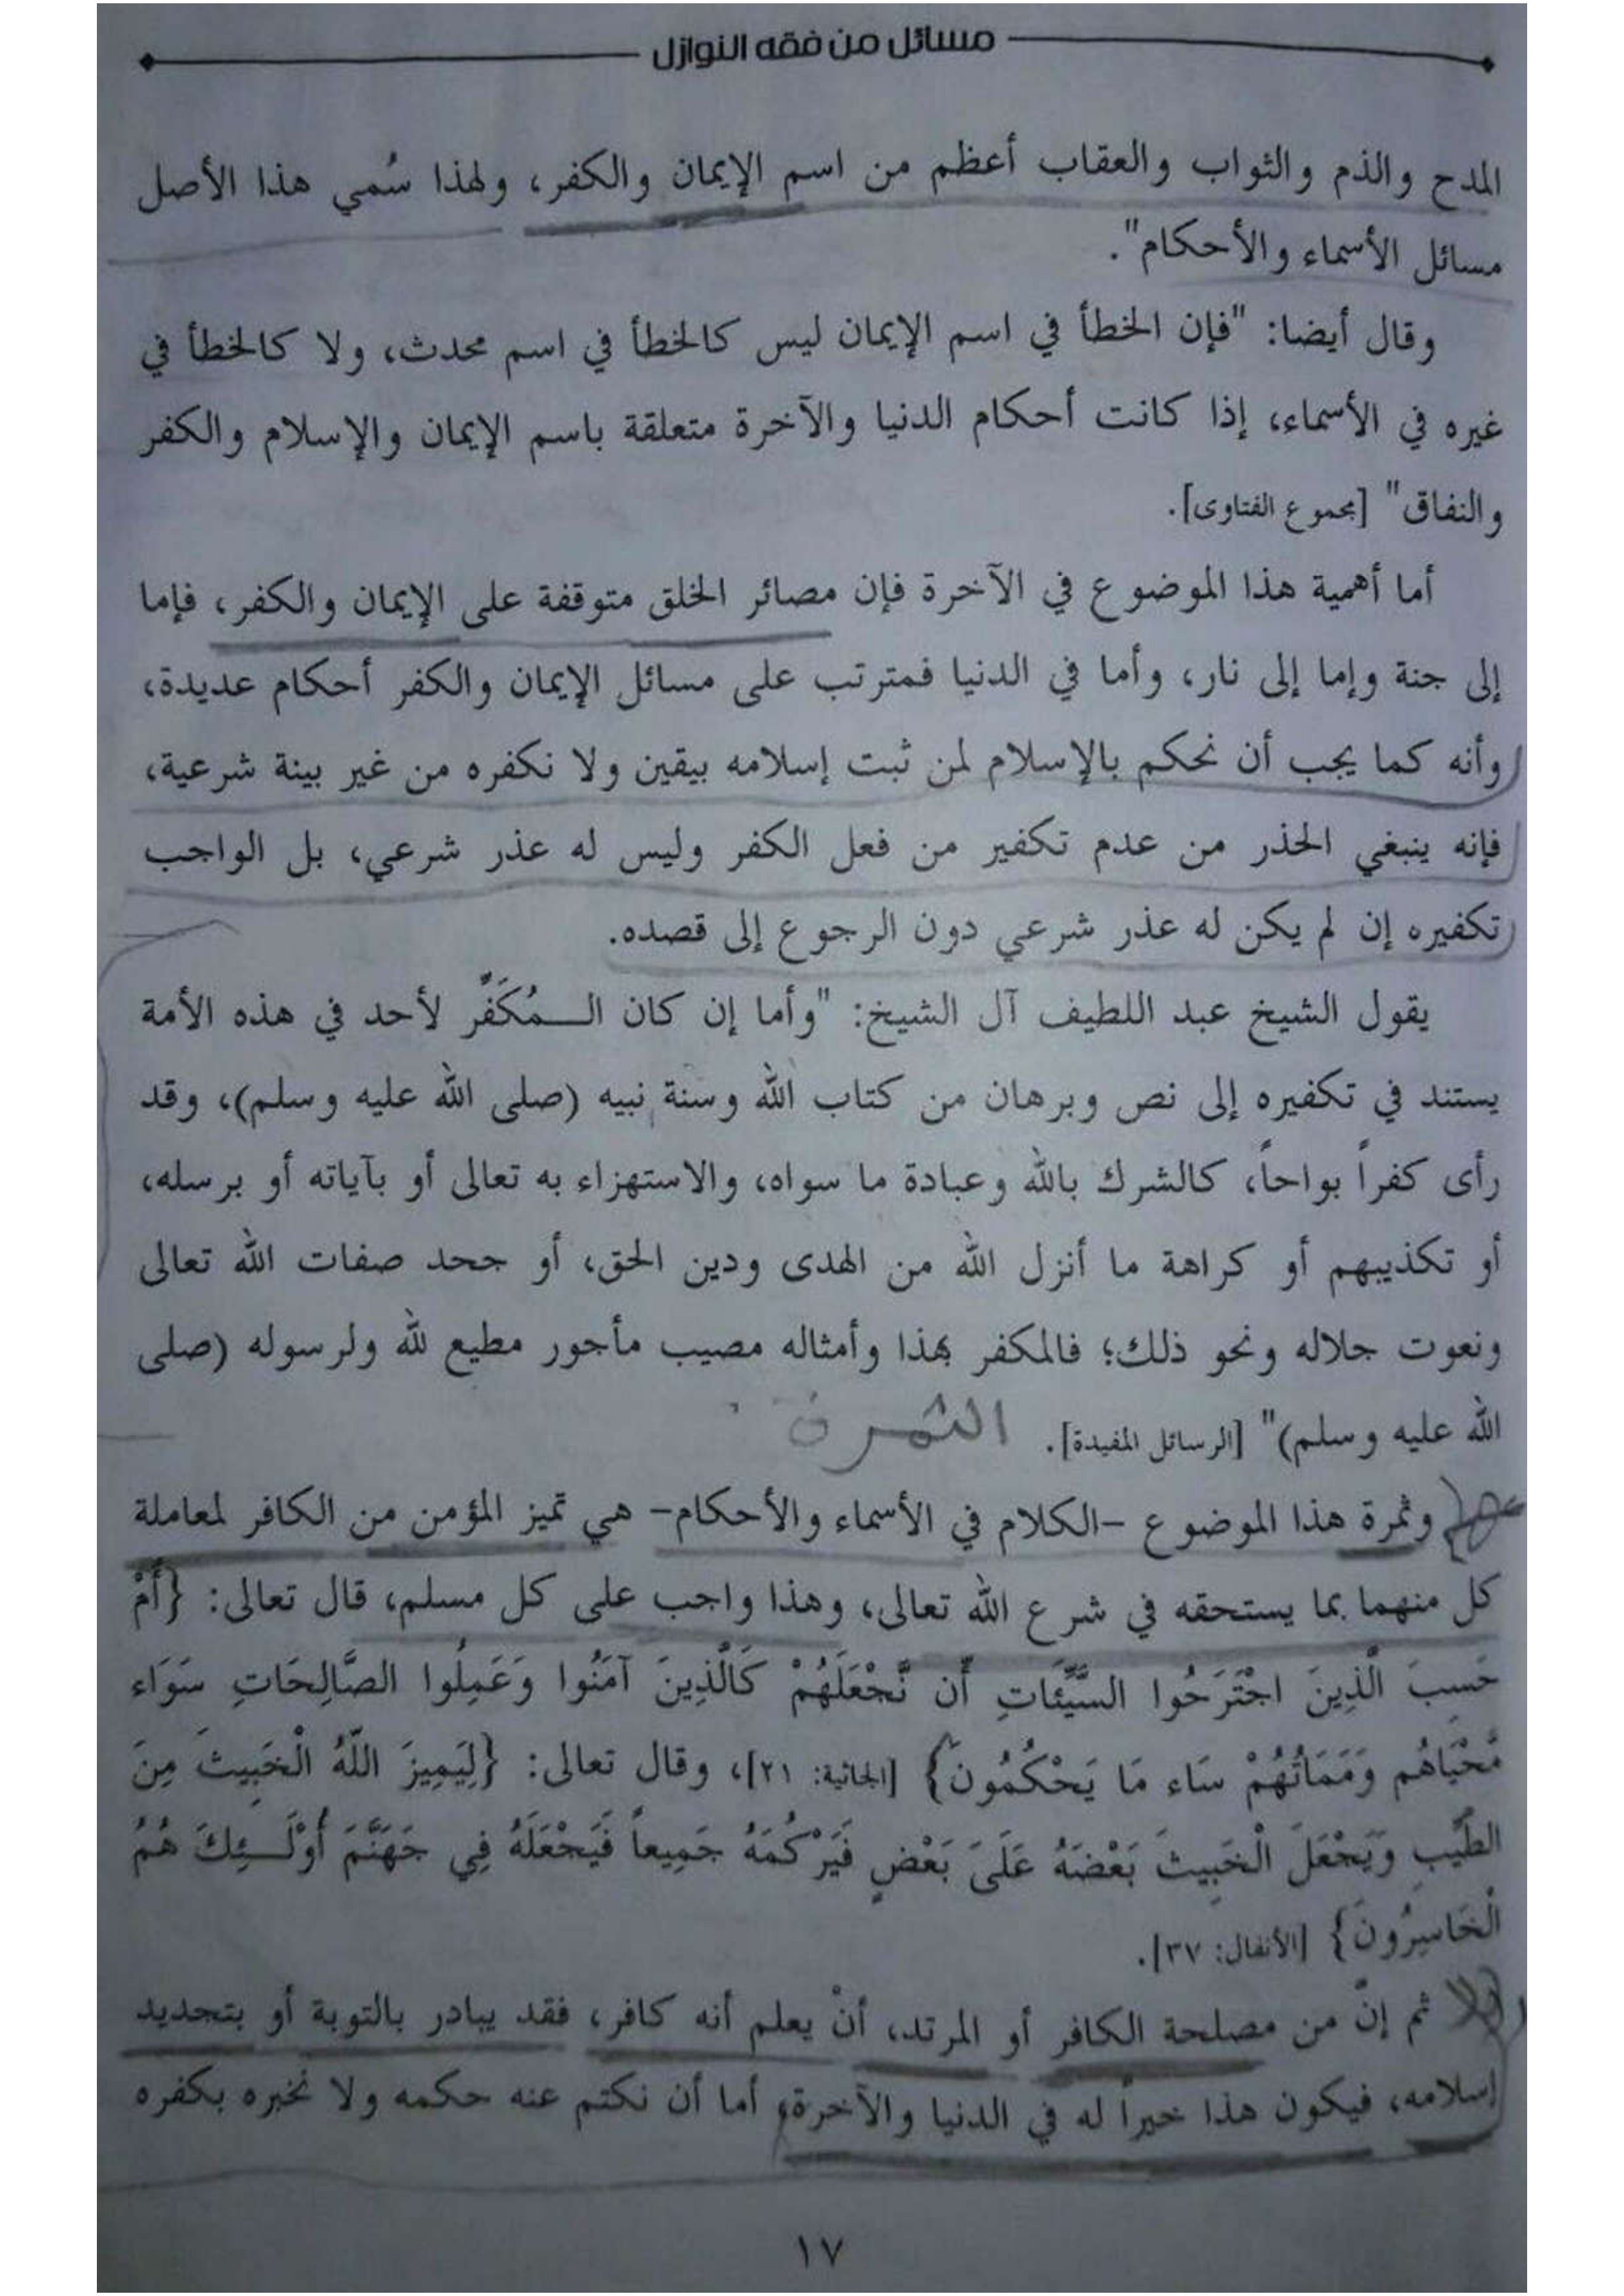 مسائل من فقه النوازل
المدح والذم والثواب والعقاب أعظم من اسم الإيمان والكفر، ولهذا سُمي هذا الأصل
مسائل الأسماء والأحكام".
وقال أيضا: "فإن الخطأ في اسم الإيمان ليس كالخطأ في اسم محدث، ولا كالخطأ في
غيره في الأسماء، إذا كانت أحكام الدنيا والآخرة متعلقة باسم الإيمان والإسلام والكفر
والنفاق" [مجموع الفتاوى].
أما أهمية هذا الموضوع في الآخرة فإن مصائر الخلق متوقفة على الإيمان والكفر، فإما
إلى جنة وإما إلى نار، وأما في الدنيا فمترتب على مسائل الإيمان والكفر أحكام عديدة،
وأنه كما يجب أن نحكم بالإسلام لمن ثبت إسلامه بيقين ولا نكفره من غير بينة شرعية،
فإنه ينبغي الحذر من عدم تكفير من فعل الكفر وليس له عذر شرعي، بل الواجب
تكفيره إن لم يكن له عذر شرعي دون الرجوع إلى قصده.
يقول الشيخ عبد اللطيف آل الشيخ: "وأما إن كان الـــمُكَفَّر لأحد في هذه الأمة
يستند في تكفيره إلى نص وبرهان من كتاب الله وسنة نبيه (صلى الله عليه وسلم)، وقد
رأى كفراً بواحاً، كالشرك بالله وعبادة ما سواه، والاستهزاء به تعالى أو بآياته أو برسله،
أو تكذيبهم أو كراهة ما أنزل الله من الهدى ودين الحق، أو جحد صفات الله تعالى
ونعوت جلاله ونحو ذلك؛ فالمكفر بهذا وأمثاله مصيب مأجور مطيع لله ولرسوله (صلى
الله عليه وسلم)" [الرسائل المفيدة]. الثمرة
وثمرة هذا الموضوع -الكلام في الأسماء والأحكام- هي تميز المؤمن من الكافر لمعاملة
كل منهما بما يستحقه في شرع الله تعالى، وهذا واجب على كل مسلم، قال تعالى: {أَمْ
حَسِبَ الَّذِينَ اجْتَرَحُوا السَّيِّئَاتِ أَّن نَّجْعَلَهُمْ كَالَّذِينَ آمَنُوا وَعَمِلُوا الصَّالِحَاتِ سَوَاء
مَّحْيَاهُم وَمَمَاتُهُمْ سَاء مَا يَحْكُمُونَ} [الجاثية: ٢١]، وقال تعالى: {لِيَمِيزَ اللّهُ الْخَبِيثَ مِنَ
الطَّيِّبِ وَيَجْعَلَ الْخَبِيثَ بَعْضَهُ عَلَىَ بَعْضٍ فَيَرْكُمَهُ جَمِيعاً فَيَجْعَلَهُ فِي جَهَنَّمَ أُوْلَـــئِكَ هُمُ
الْخَاسِرُونَ} [الأنفال: ٣٧].
ثم إنّ من مصلحة الكافر أو المرتد، أنْ يعلم أنه كافر، فقد يبادر بالتوبة أو بتجديد
إسلامه، فيكون هذا خيراً له في الدنيا والآخرة، أما أن نكتم عنه حكمه ولا نخبره بكفره
١٧